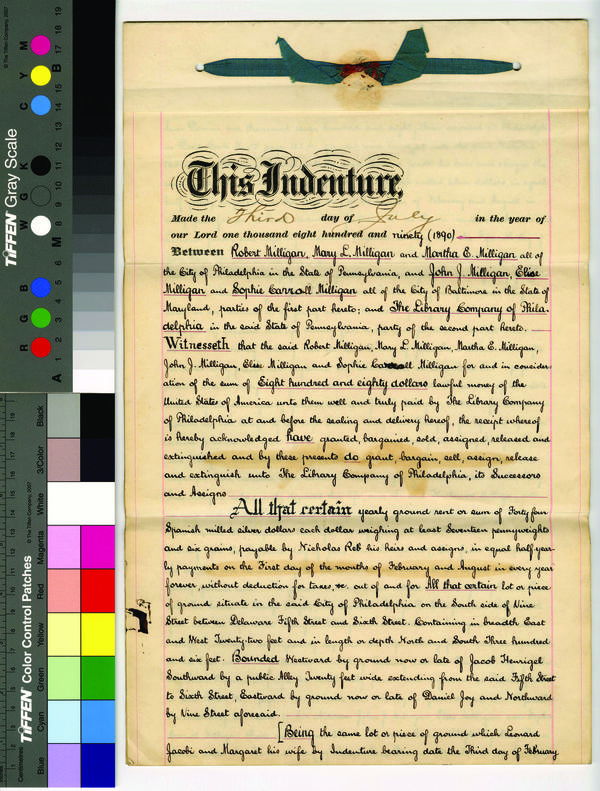 This Indenture,
Made the Third day of July in the year of
our Lord one thousand eight hundred and ninety (1890)
Between Robert Milligan, Mary L. Milligan and Martha E. Milligan all of
the City of Philadelphia in the State of Pennsylvania, and John J. Milligan, Elise
Milligan and Sophie Carroll Milligan all of the City of Baltimore in the State of
Maryland, parties of the first part hereto; and The Library Company of Phila-
delphia in the said State of Pennsylvania, party of the second part hereto.
Witnesseth that the said Robert Milligan, Mary L. Milligan, Martha E. Milligan,
John J. Milligan, Elise Milligan and Sophie Carroll Milligan for and in consider-
ation of the sum of Eight hundred and eighty dollars lawful money of the
United States of America unto them well and truly paid by The Library Company
of Philadelphia at and before the sealing and delivery hereof, the receipt whereof
is hereby acknowledged have granted, bargained, sold, assigned, released and
extinguished and by these presents do grant, bargain, sell, assign, release
and extinguish unto The Library Company of Philadelphia, its Successors
and Assigns
All that certain yearly ground rent or sum of Forty four
Spanish milled silver dollars each dollar weighing at least Seventeen pennyweights
and six grains, payable by Nicholas Reb his heirs and assigns, in equal half year-
ly payments on the First day of the months of February and August in every year
forever, without deduction for taxes, &c. out of and for All that certain lot or piece
of ground situate in the said City of Philadelphia on the South side of Vine
Street between Delaware Fifth Street and Sixth Street. Containing in breadth East
and West Twenty-two feet and in length or depth North and South Three hundred
and six feet. Bounded Westward by ground now or late of Jacob Henrigel
Southward by a public Alley Twenty feet wide extending from the said Fifth Street
to Sixth Street, Eastward by ground now or late of Daniel Joy and Northward
by Vine Street aforesaid.
[Being the same lot or piece of ground which Leonard
Jacobi and Margaret his wife by Indenture bearing date the Third day of February
TIFFEN Gray Scale
© The Tiffen Company, 2007
R G B W G K C Y M
A 1 2 3 4 5 6 M 8 9 10 11 12 13 14 15 B 17 18 19
TIFFEN Color Control Patches
© The Tiffen Company, 2007
Blue Cyan Green Yellow Red Magenta White 3/Color Black
Centimetres